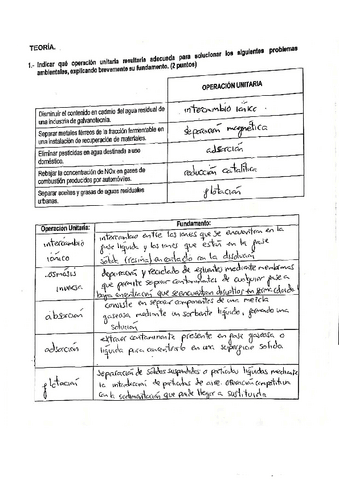 TEORÍA.
1.- Indicar qué operación unitaria resultaría adecuada para solucionar los siguientes problemas
ambientales, explicando brevemente su fundamento. (2 puntos)
OPERACIÓN UNITARIA
Disminuir el contenido en cadmio del agua residual de
una industria de galvanotecnia.
intercambio iónico.
Separar metales férreos de la fracción fermentable en
una instalación de recuperación de materiales.
separación magnética
Eliminar pesticidas en agua destinada a uso
doméstico.
adsorción
Rebajar la concentración de NOx en gases de
combustión producidos por automóviles.
reducción catalítica
Separar aceites y grasas de aguas residuales
urbanas.
flotación
Operación Unitaria:
Fundamento:
intercambio
iónico
intercambio entre los iones que se encuentran en la
fase líquida y los iones que están en la fase
sólida (resina) en contacto con la disolución
osmosis
inversa
depuración y reciclado de efluentes mediante membranas
que permite separar contaminantes de cualquier fase a
baja concentración que se encuentran disueltos en forma coloidal
absorción
consiste en separar componentes de una mezcla
gaseosa mediante un sorbente líquido, formando una
solución
adsorción
extraer contaminante presente en fase gaseosa o
líquida para concentrarlo en una superficie sólida
flotación
Separación de sólidos suspendidos o partículas líquidas mediante
la introducción de partículas de aire. operación competitiva
con la sedimentación que puede llegar a sustituirla